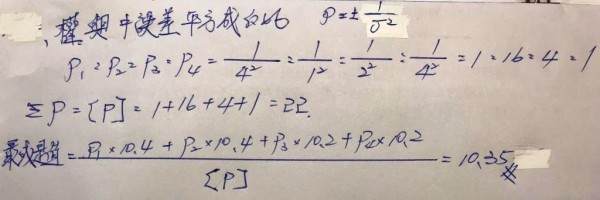 、權與中誤差平方成反比 P=±1/σ²
P₁:P₂=P₃=P₄=1/4²:1/1²:1/2²:1/4²=1=16=4=1
ΣP=[P]=1+16+4+1=22.
=P₁×10.4+P₂×10.4+P₃×10.2+P₄×10.2/[P]=10.35